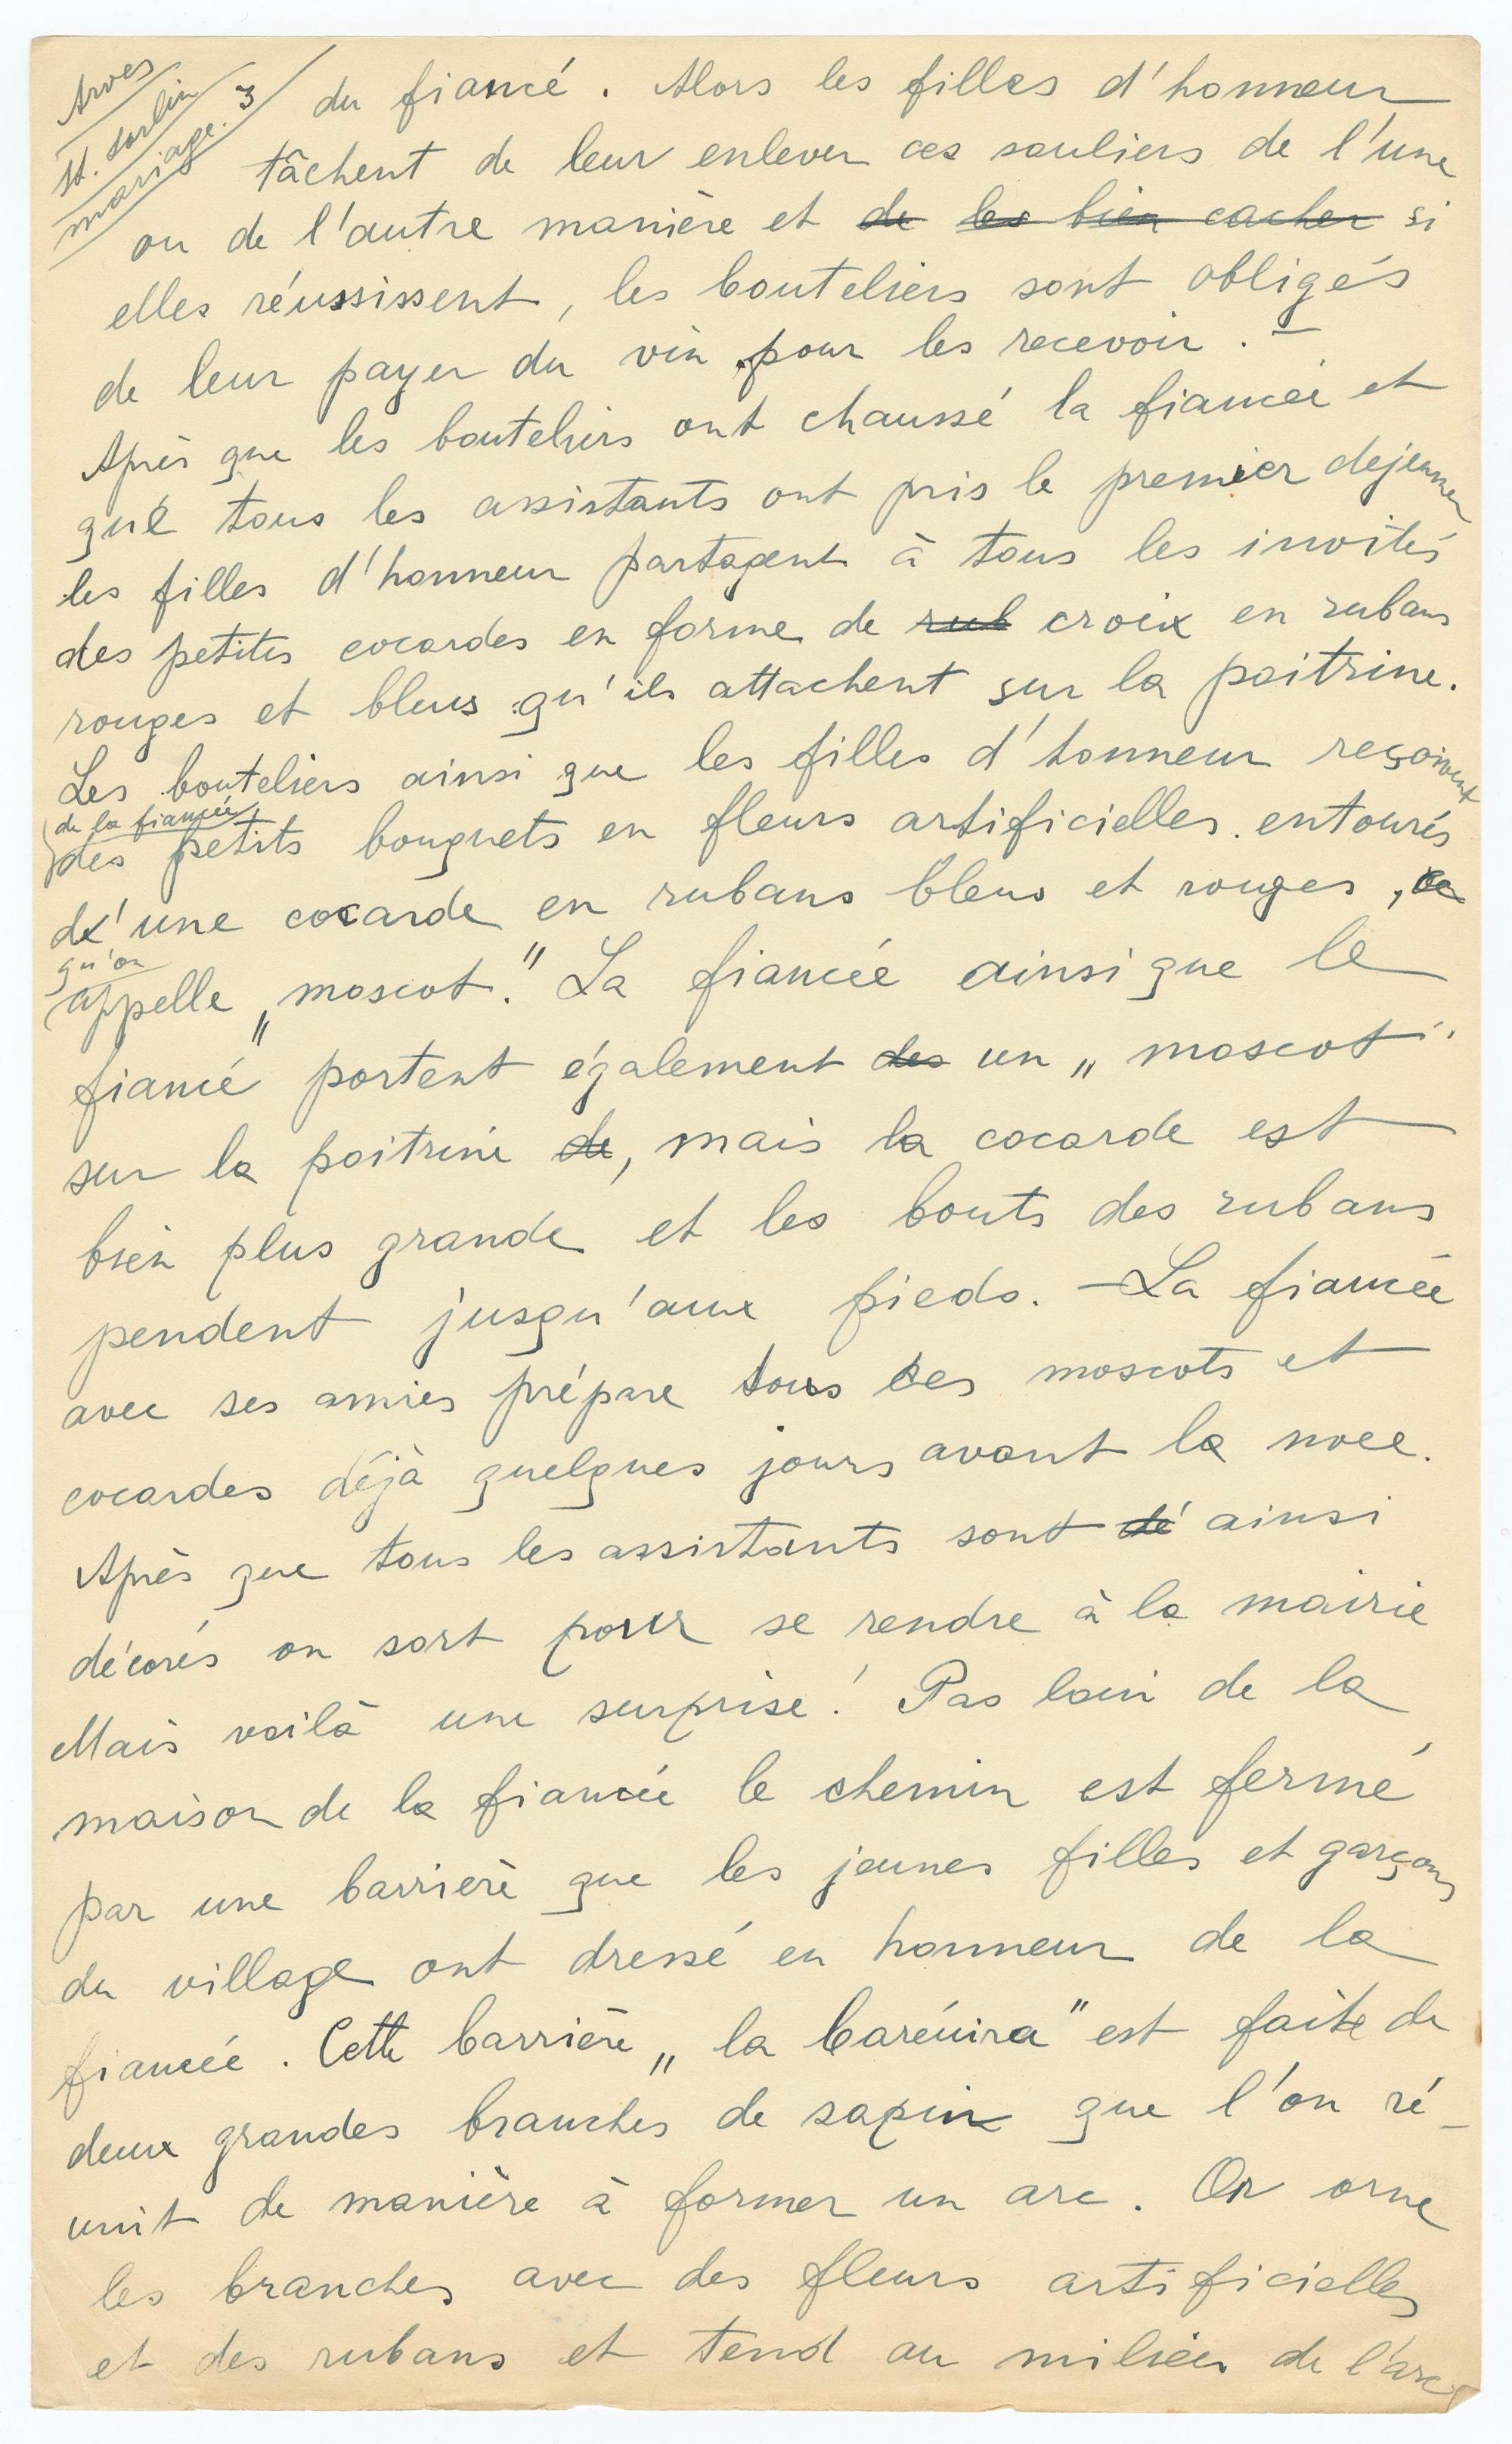 Arves
St. Sorlin
mariage. 3
du fiancé. Alors les filles d'honneur
tâchent de leur enlever ces souliers de l'une
ou de l'autre manière et de les bien cacher si
elles réussissent, les bouteliers sont obligés
de leur payer du vin pour les recevoir. –
Après que les bouteliers ont chaussé la fiancée et
que tous les assistants ont pris le premier dejeuner
les filles d'honneur partagent à tous les invités
des petites cocardes en forme de rub croix en rubans
rouges et bleus qu'ils attachent sur la poitrine.
Les bouteliers ainsi que les filles d'honneur reçoivent
de la fiancée
des petits bouquets en fleurs artificielles entourés
d'une cocarde en rubans bleus et rouges, ce
qu'on
appelle „moscot." La fiancée ainsi que le
fiancé portent également des un „moscot"
sur la poitrine de, mais la cocarde est
bien plus grande et les bouts des rubans
pendent jusqu'aux pieds. – La fiancée
avec ses amies prépare tous ces moscots et
cocardes déjà quelques jours avant la noce.
Après que tous les assistants sont dé ainsi
décorés on sort pour se rendre à la mairie
Mais voilà une surprise! Pas loin de la
maison de la fiancée le chemin est fermé
par une barrière que les jeunes filles et garçons
du village ont dressé en honneur de la
fiancée. Cette barrière „la baréúira" est faite de
deux grandes branches de sapin que l'on ré-
unit de manière à former un arc. On orne
les branches avec des fleurs artificielles
et des rubans et tend au milieu de l'arc